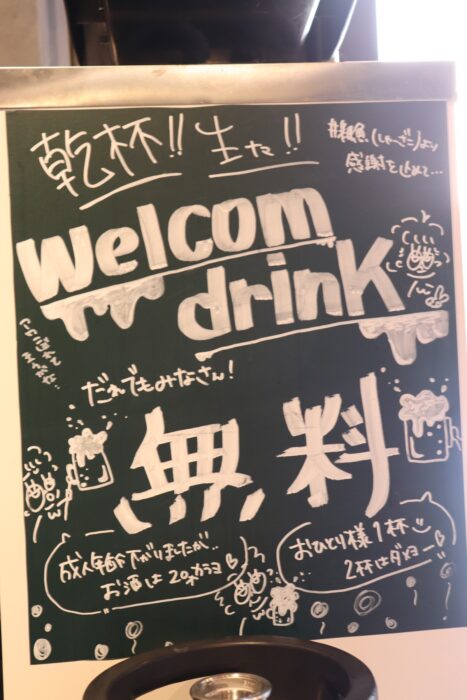 乾杯!! 生だ!!
(しゃーざこ)より
感謝を込めて…
Welcom
drink
だれでもみなさん!
無料
成人年齢下がりましたが…
お酒は20歳カラヨ
おひとり様1杯
2杯はダメヨー